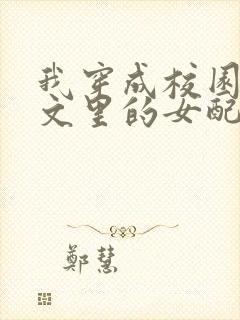 我穿成校园
文里的女配
鄭慧